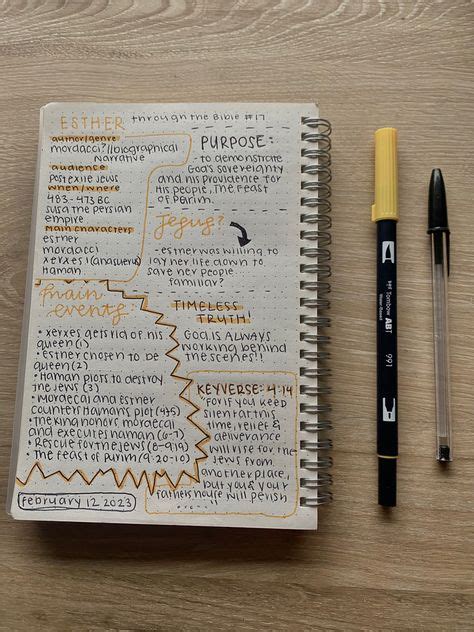 ESTHER
through the Bible #17
author/genre
mordacci?//biographical
narrative
audience
postexile Jews
when/where
483-473 BC
susa the persian
empire
main characters
esther
mordacci
xerxes I (
haman
PURPOSE:
-to demonstrate
God's sovereignty
and his providence for
His people, The feast
of parim.
Jesus?
-esther was willing to
lay her life down to
save her people.
familiar?
main
events:
• xerxes gets rid of his
queen (1)
• esther chosen to be
queen (2)
• Haman plots to destroy
the Jews (3)
• Mordecai and esther
counters Haman's plot (4+5)
• the king honors mordecai
and executes haman (6-7)
• Rescue for the Jews (8-9:19)
• the feast of Purim (9:20-10)
february 12 2023
TIMELESS
TRUTH!
GOD IS ALWAYS
working behind
the scenes!!
KEYVERSE: 4:14
"for if you keep
silent at this
time, relief &
deliverance
will rise for the
Jews from
another place,
but you & your
fathers house will perish
Tombow ABT
991